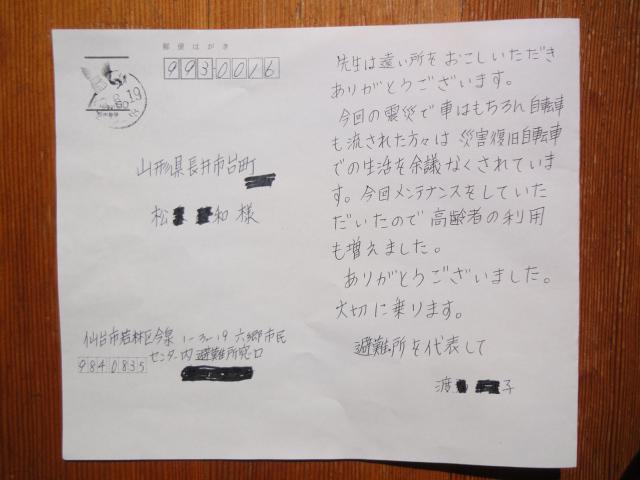 郵便はがき
993-0016
山形県長井市台町
松 和様
仙台市若林区今泉 1-3-19 六郷市民
センター内 避難所窓口
9840835
先生は遠い所をおこしいただき
ありがとうございます。
今回の震災で車はもちろん自転車
も流された方々は災害復旧自転車
での生活を余議なくされていま
す。今回メンテナンスをしていた
だいたので高齢者の利用
も増えました。
ありがとうございました。
大切に乗ります。
避難所を代表して
渡 子